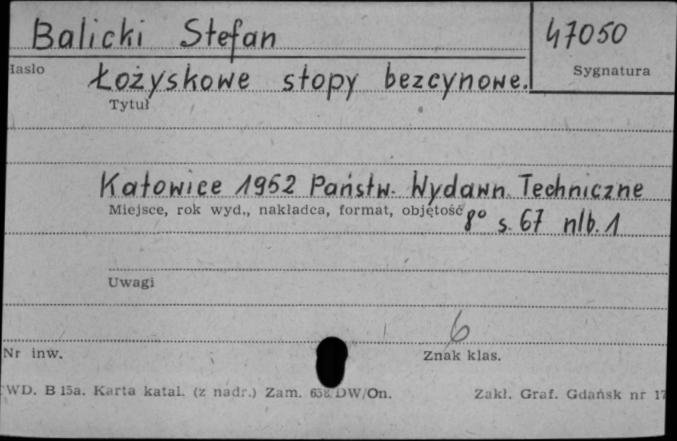 Balicki Stefan 47050
Hasło Sygnatura
Łożyskowe stopy bezcynowe.
Tytuł
Katowice 1952 Państw. Wydawn. Techniczne
Miejsce, rok wyd., nakładca, format, objętość 8° s. 67 nlb. 1
Uwagi
6
Nr inw. Znak klas.
WD. B 15a. Karta katal. (z nadr.) Zam. 658/DW/On. Zakł. Graf. Gdańsk nr 17